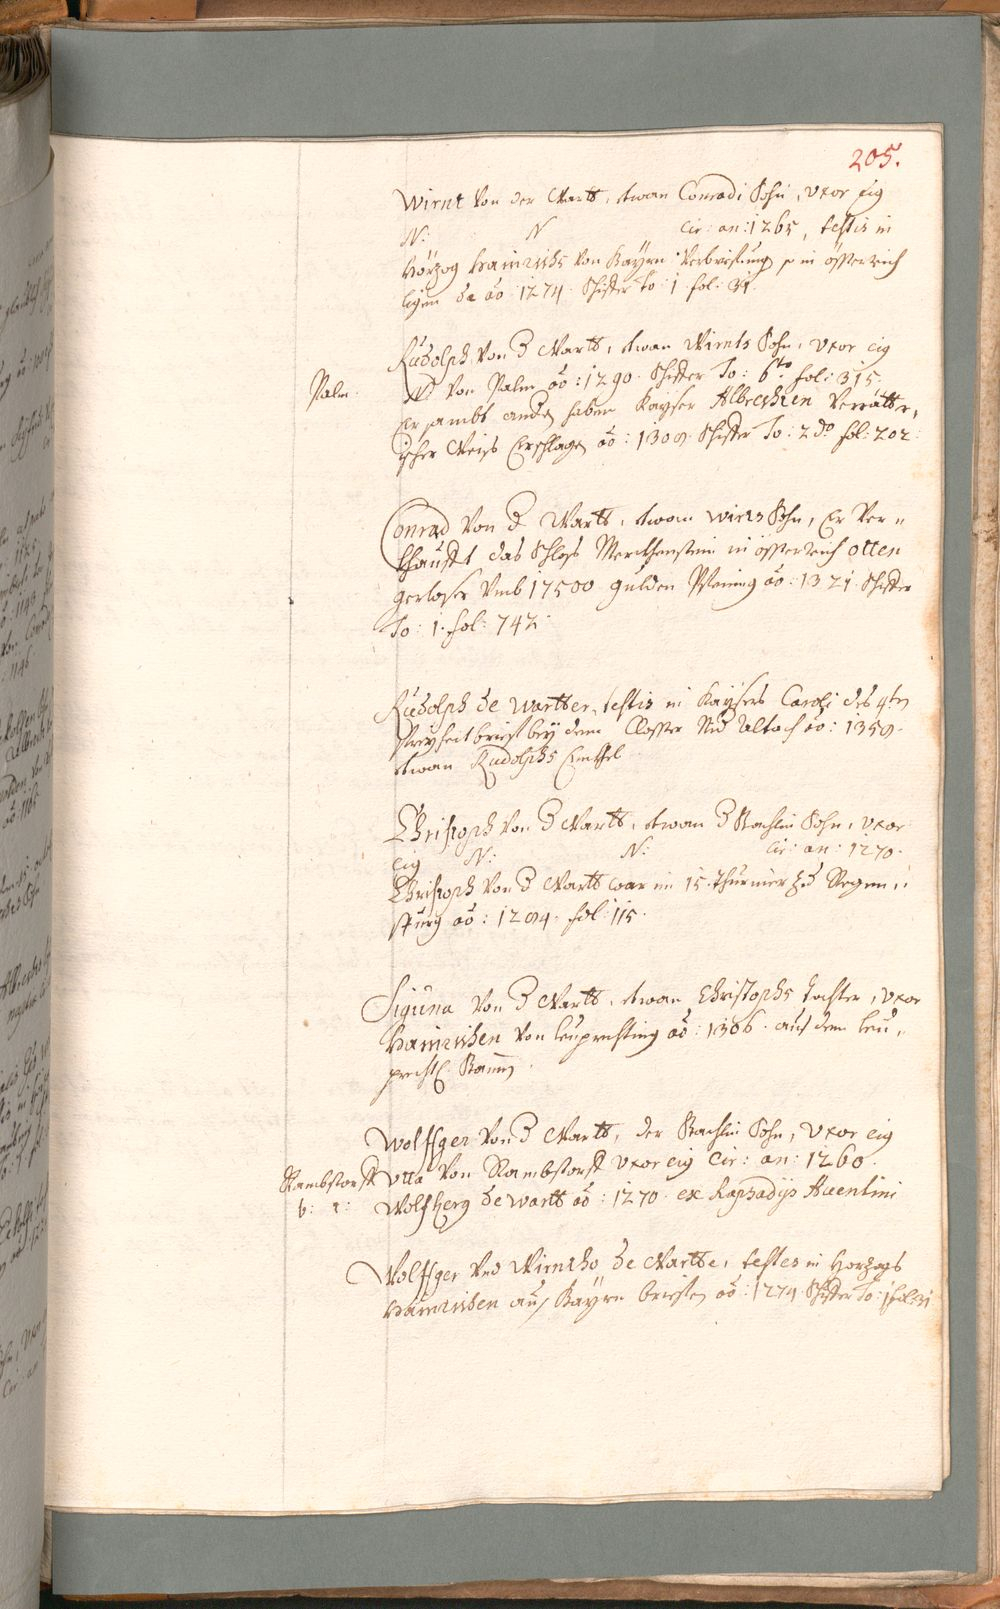 205.
Wirnt von der Wartt, etwan Conradi Sohn, vxor eig
N: N cir: an: 1265, testis in
Hörzog Hainrichs von Bayrn in österreich
ao 1274. To: 1. fol: 31.
Rudolph von d Wartt, etwan Wirnts Sohn, vxor eig
Palm. N von Palm ao: 1290. To: 6to fol: 315.
Er sambt andn haben Kayser Albrechten verrätter,
ischer Weiß Erschlagn ao: 1309. To: 2do fol: 202:
Conrad von d Wartt, etwan Wirts Sohn, Er ver=
khaufft das Schloß Merckhenstein in österreich Otten
Gerloser vmb 17500 gulden Pfening ao: 1321.
To: 1. fol: 742.
Rudolph de Wartter, testis in Kaysers Caroli des 4tn
freyheit brieff bey dem Closter Nid Altach ao: 1359.
etwan Rudolphs Enckhel
Christoph von d Wartt, etwan d Stachlin Sohn, vxor
eig N: N: cir: an: 1270.
Christoph von d Wartt war im 15. Thurnier zu Regen,,
spurg ao: 1284. fol: 115.
Siguna von d Wartt, etwan Christophs tochter, vxor
Hainrichen von Leuprechting ao: 1306. auß dem Leu,,
precht. Stamm
Wolffger von d Wartt, der Stachlin Sohn, vxor eig
Rambstorff Utta von Rambstorff vxor eig cir: an: 1260.
b: r: Wolfherg de Wartt ao: 1270. ex Rapsadijs Auentini
Wolffger vnd Wirntho de Wartte, testes in Hörzogs
Hainrichen auß Bayrn brieffn ao: 1274. To: 1 fol: 31